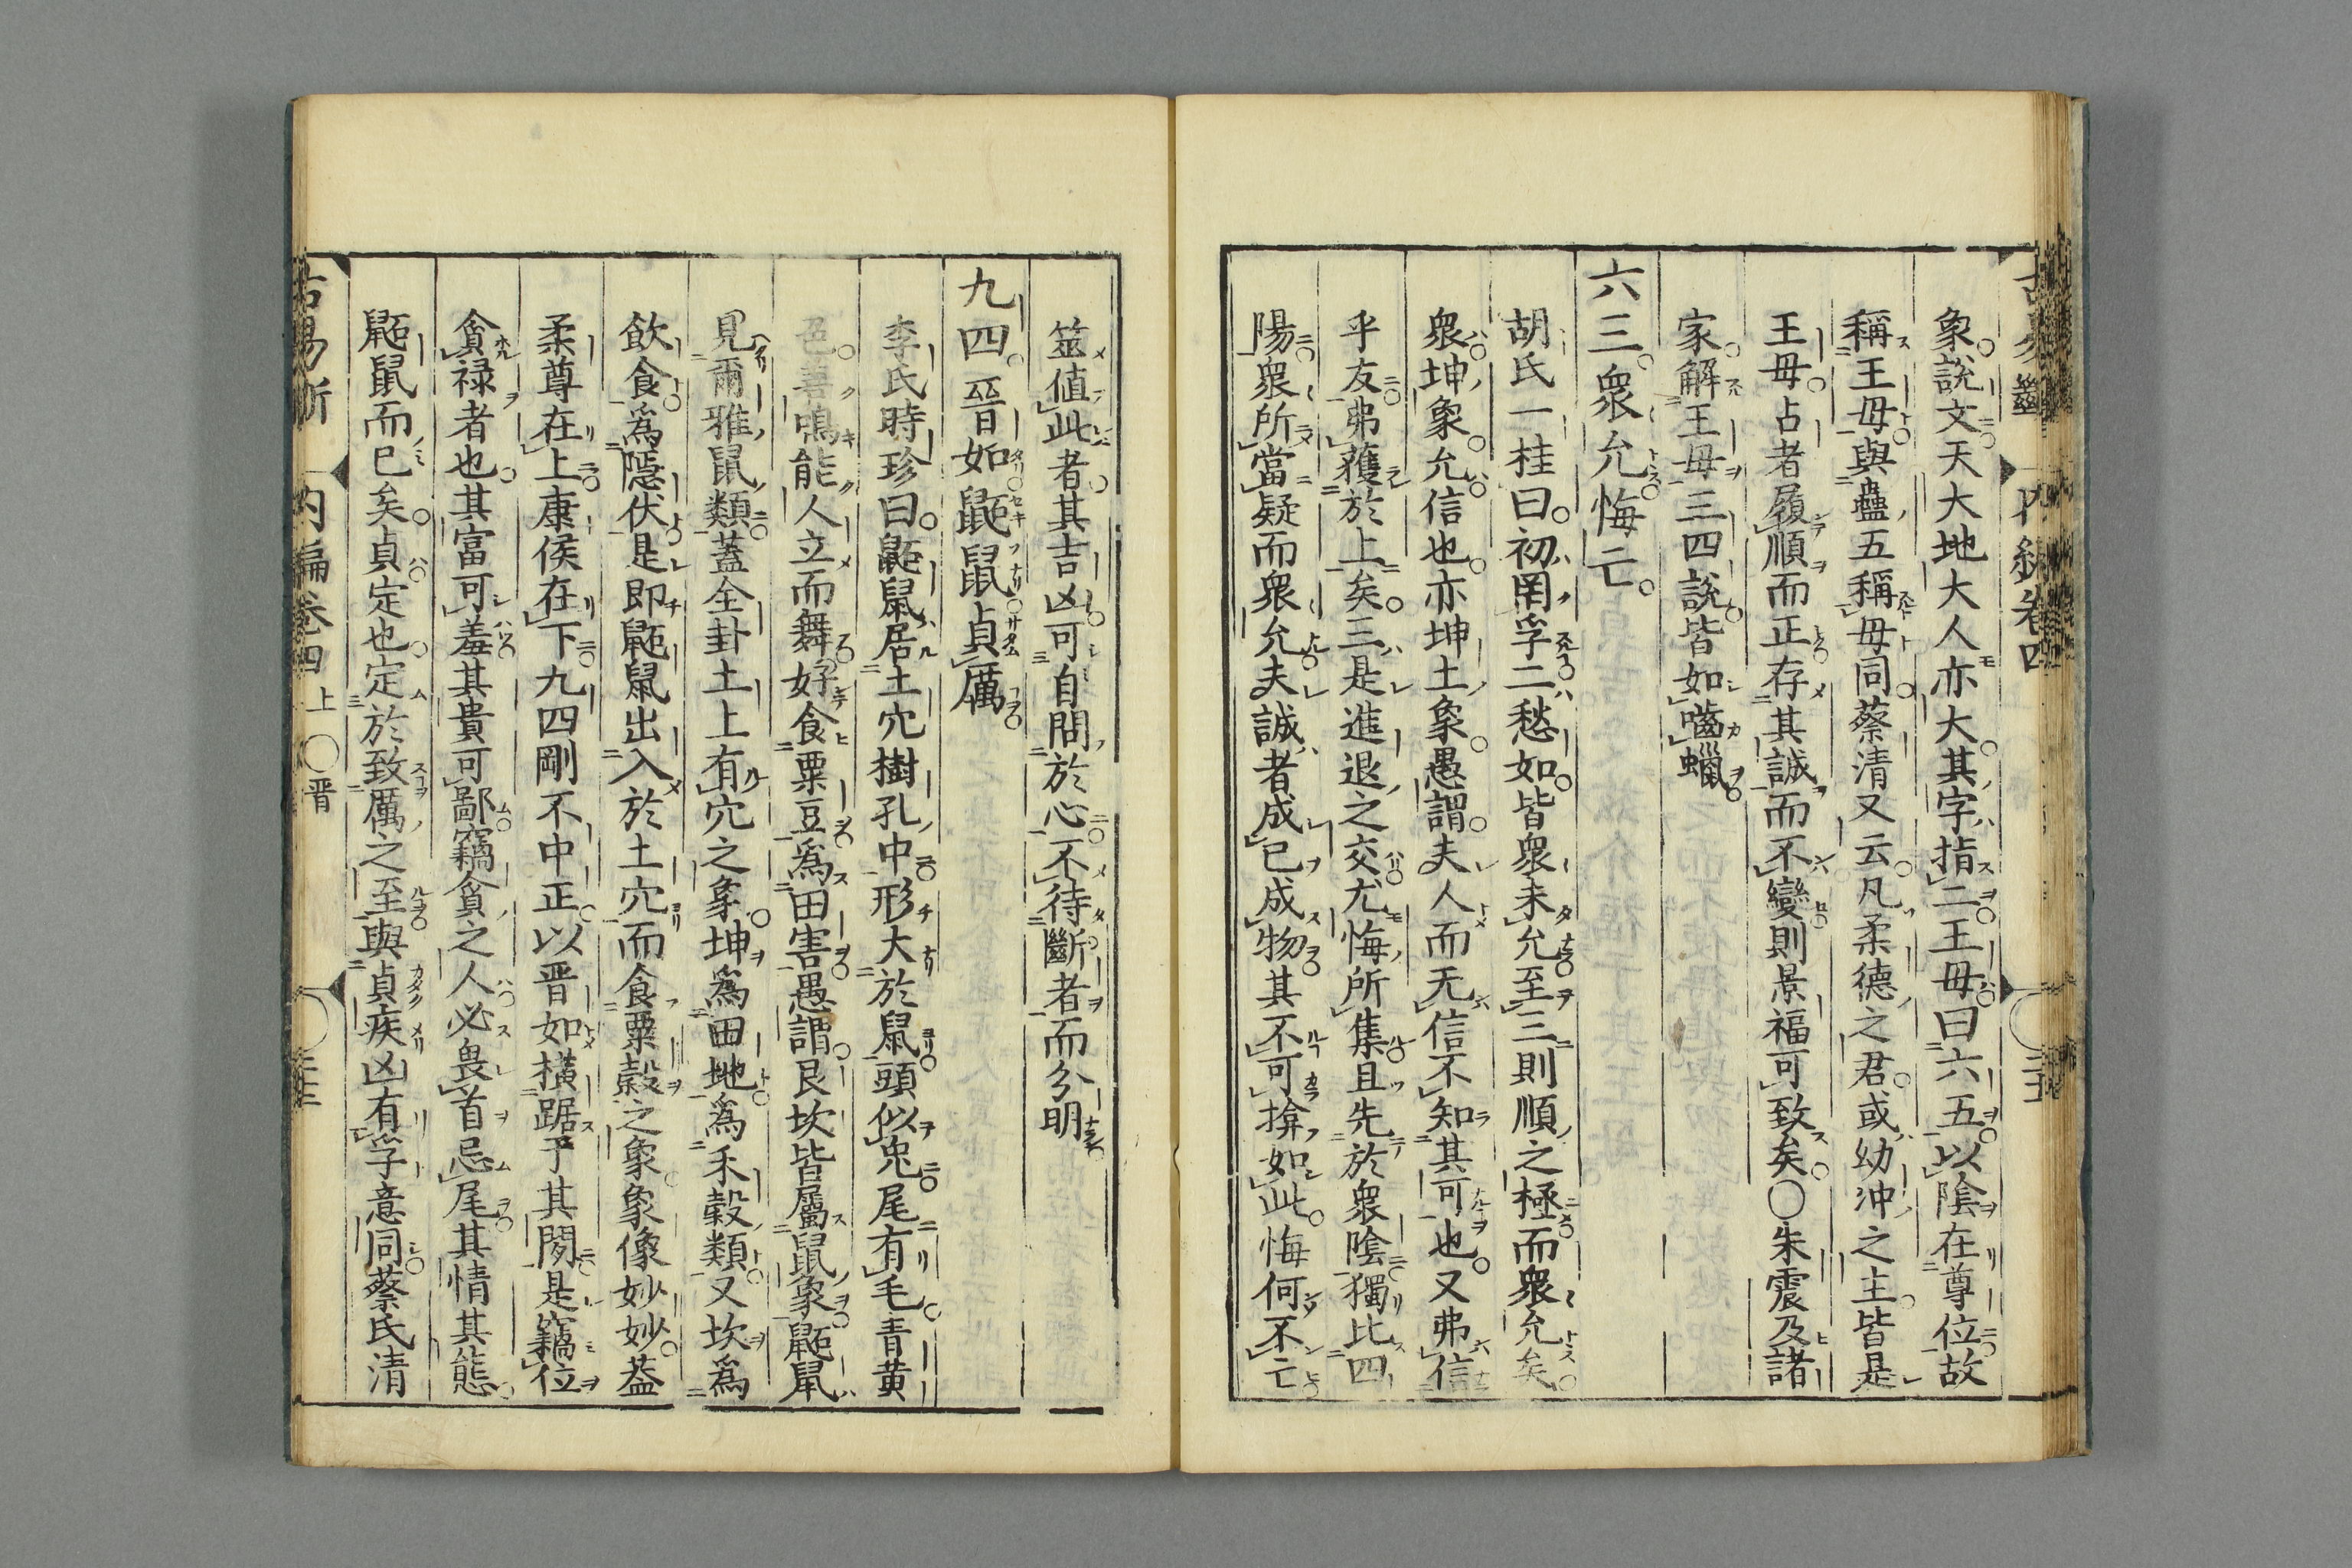 象說文天大地大人亦大其字指二王母曰六五以陰在尊位故
稱王母與蠱五稱母同蔡清又云凡柔德之君或幼沖之主皆是
王母占者履順而正存其誠而不變則景福可致矣○朱震及諸
家解王母三四說皆如嚙蠟
六三衆允悔亡
胡氏一桂曰初罔孚二愁如皆衆未允至三則順之極而衆允矣
衆坤象允信也亦坤土象愚謂夫人而无信不知其可也又弗信
乎友弗獲於上矣三是進退之交尤悔所集且先於衆陰獨比四
陽衆所當疑而衆允夫誠者成已成物其不可揜如此悔何不亡
筮值此者其吉凶可自問於心不待斷者而分明
九四晉如鼫鼠貞厲
李氏時珍曰鼫鼠居土穴樹孔中形大於鼠頭似兎尾有毛青黄
色善鳴能人立而舞好食粟豆爲田害愚謂艮坎皆屬鼠象鼫鼠
見爾雅鼠類蓋全卦土上有穴之象坤爲田地爲禾穀類又坎爲
飲食爲隱伏是即鼫鼠出入於土穴而食粟穀之象象像妙妙葢
柔尊在上康侯在下九四剛不中正以晋如横踞予其間是竊位
貪禄者也其富可羞其貴可鄙竊貪之人必畏首忌尾其情其態
鼫鼠而已矣貞定也定於致厲之至與貞疾凶有孚意同蔡氏清
古易斷 内編卷四 上 ○晋